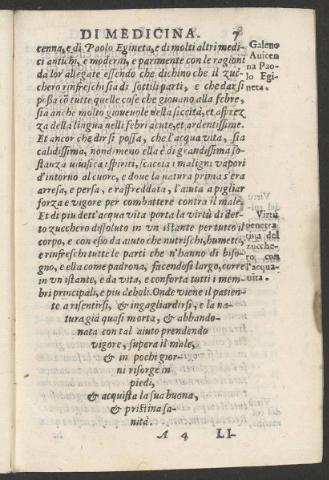 DI MEDICINA. 7
cenna, e di Paolo Egineta, e di molti altri medi-
ci antichi, e moderni, e parimente con le ragioni
da lor allegate essendo che dichino che il zuc-
chero rinfreschi sia di sottili parti, e che darsi
possa cō tutte quelle cose che giouano alla febre,
sia anche molto gioueuole nella siccità, et asprez
za della lingua nelli febri acute, et ardentissime.
Et ancor che dirsi possa, che l'acqua vita, sia
calidissima, nondimeno ella è di grandissima so-
stanza viuifica i spiriti, scaccia i maligni vapori
d'intorno al cuore, e doue la natura prima s'era
arresa, e persa, e raffreddata, l'aiuta a pigliar
forza e vigore per combattere contra il male.
Et di più dett'acqua vita porta la virtù di det-
to zucchero dissoluto in vn istante per tutto il
corpo, e con esso da aiuto che nutrischi, humetti,
e rinfreschi tutte le parti che n'hanno di biso-
gno, e ella come padrona, facendosi largo, corre
in vn istante, e da vita, e conforta tutti i mem
bri principali, e piu deboli. Onde viene il patien-
te a risentirsi, & ingagliardirsi, e la na-
tura già quasi morta, & abbando-
nata con tal aiuto prendendo
vigore, supera il male,
& in pochi gior-
ni risorge in
piedi,
& acquista la sua buona,
& pristina sa-
nità.
A 4 LI-
Galeno
Auicen
na Pao-
lo Egi-
neta.
Virtù
penetra
tiua del
zucche-
ro con
l'acqua-
uita.